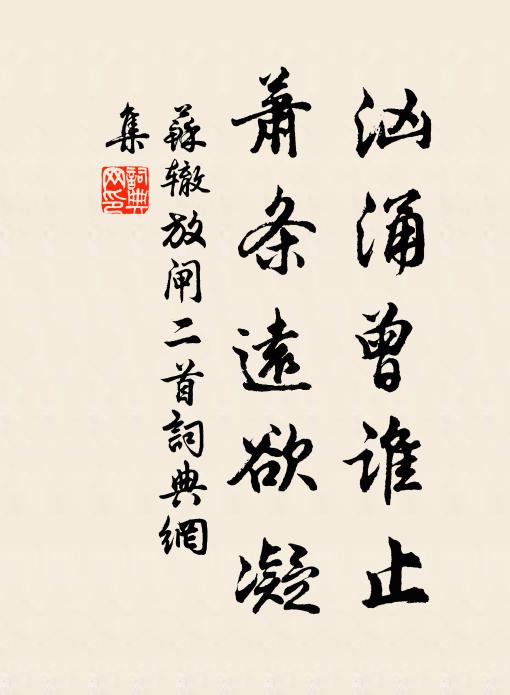 汹涌曾谁止
萧条遠欲凝
蘇辙放闸二首詞典網
集
詞典网印